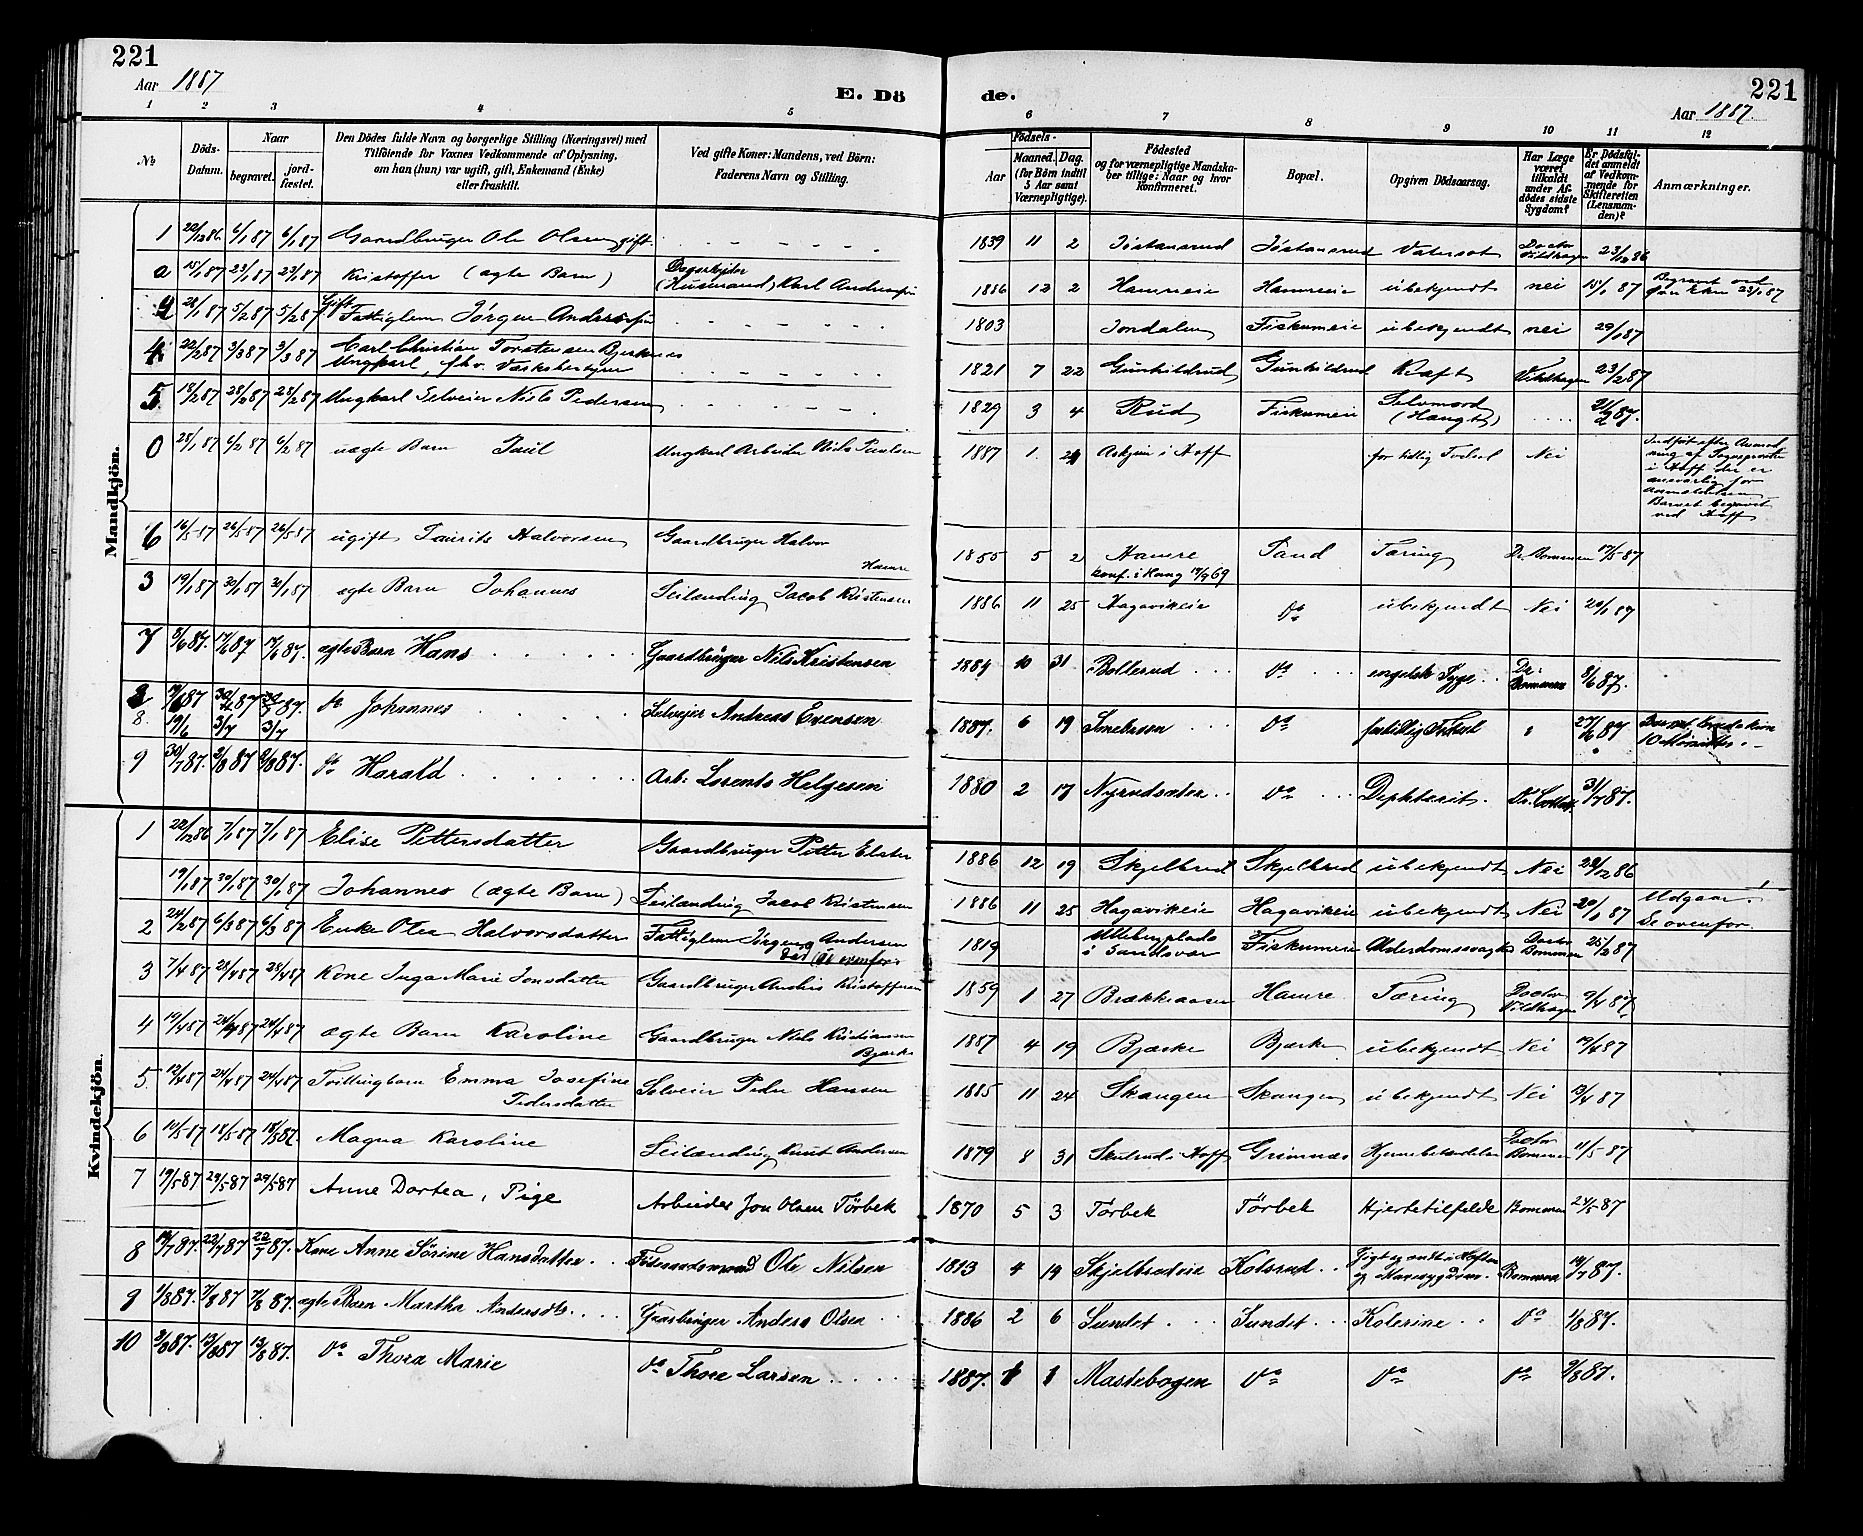 221
Aar 1887
E. Dö
1 2 3 4 5
№
Döds-Datum.
Naar
begravet.
jord-fæstet.
Den Dödes fulde Navn og borgerlige Stilling (Næringsvei) med
Tilföiende for Voxnes Vedkommende af Oplysning,
om han (hun) var ugift, gift, Enkemand (Enke)
eller fraskilt.
Ved gifte Koner: Mandens, ved Börn:
Faderens Navn og Stilling.
Mandkjön.
1 22/12 86 6/1 87 6/1 87 Gaardbruger Ole Olsen gift
15/1 87 23/1 87 23/1 87 Kristoffer (ægte Barn) (Husmand) Karl Andersen
28/1 87 5/2 87 5/2 87 Gift Fattiglem Jörgen Andersen
4 22/2 87 3/3 87 3/3 87 Carl Christian Torstensen Bjerknes
Ungkarl, fhv.
5 18/2 87 28/2 87 28/2 87 Ungkarl Selveier Nils Pedersen
0 28/1 87 6/2 87 6/2 87 uægte Barn Paul Ungkarl Arbeider Nils Paulsen
6 16/5 87 26/5 87 26/5 87 ugift Laurits Halvorsen Gaardbruger Halvor
Hamre
3 19/1 87 30/1 87 30/1 87 ægte Barn Johannes Leilænding Jacob Kristensen
7 8/6 87. 17/6 87 17/6 87. ægte Barn Hans Gaardbruger Nils Kristensen
8. 19/6 3/7 3/7 do Johannes Selvejer Andreas Evensen
9 30/7 87. 2/8 87 2/8 87. do Harald Arb. Lorents Helgesen
Kvindekjön.
1 22/12 86 7/1 87 7/1 87 Elise Pettersdatter Gaardbruger Petter
19/1 87 30/1 87 30/1 87 Johannes (ægte Barn) Leilænding Jacob Kristensen
2 24/2 87 6/3 87 6/3 87 Enke Olea Halvorsdatter Fattiglem Jörgen Andersen
3 7/4 87 28/4 87 28/4 87 Kone Inga Marie Jonsdatter Gaardbruger Anders Kristoffersen
4 19/4 87 24/4 87 24/4 87 ægte Barn Karoline Gaardbruger Niels Kristiansen
Bjerke
5. 12/4 87 24/4 87 24/4 87 Tvillingbarn Emma Josefine Selveier Peder Hansen
Pedersdatter
6 10/5 87 18/5 87 18/5 87. Magna Karoline Leilænding Knut Andersen
7 19/5 87 29/5 87 29/5 87 Anne Dortea, Pige Arbeider Jon Olsen Törbek
8 14/7 87. 22/7 87 22/7 87. Kone Anne Sörine Hansdatter Föderaadsmand Ole Nilsen
9 1/8 87. 7/8 87 7/8 87. ægte Barn Martha Andersdtr. Gaardbruger Anders Olsen
10 9/8 87. 13/8 87 13/8 87. do Thora Marie do Thore Larsen
221
Aar 1887.
de.
6 7 8 9 10 11 12
Födsels-
Aar
Maaned. Dag.
(for Börn indtil
5 Aar samt
Værnepligtige).
Födested
og for værnepligtige Mandska-
ber tillige: Naar og hvor
Konfirmeret.
Bopæl.
Opgiven Dödsaarsag.
Har Læge
været
tilkaldt
under Af-
dödes sidste
Sygdom?
Er Dödsfal-
det anmeldt
af Vedkom-
mende for
Skifteretten
(Lensman-
den)?
Anmærkninger.
1839 11 2 Jöstansrud Jöstansrud Vatersot Doctor Vildhagen 23/12 86
1886 12 2 Hamreeie Hamreeie ubekjendt nei 15/1 87
1803 Jondalen Fiskumeie ubekjendt nei 29/1 87
1821 7 22 Gunhildrud Gunhildrud Kræft Vildhagen 23/2 87
1829 3 4 Rud Fiskumeie Selvmord (Hængt) 21/2 87.
1887 1. 24 Askjum i Hoff for tidlig Födsel Nei
Indfört efter Anmod-
ning af Sogneprästen
i Hoff der er
ansvarlig for
Anmeldelsen
Barnet begravet
ved Hoff
1855 5 2 Hamre Sand Tæring Dr. Bommen 17/5 87
konf. i Haug 17/9 69
1886 11 25 Hagavikeie do ubekjendt Nei 20/1 87
1884 10 31 Bolkerud do engelsk Syge Dr. Bommen 8/6 87.
1887. 6 19 do fortidlig Födsel 27/6 87
1880 2 17 Nyrudsæter do Difhterit. 31/7 87.
1886 12 19 Skjelbred Skjelbred ubekjendt Nei 28/12 86
1886 11 25 Hagavikeie Hagavikeie ubekjendt Nei 20/1 87 Udgaar.
Se ovenfor.
1819 i Sandsvær Fiskumeie Alderdomssvaghed Doctor Bommen 25/2 87
1859 1 27 Brækkaasen Hamre Tæring Doctor Vildhagen 9/4 87
1887 4 19 Bjerke Bjerke ubekjendt Nei 19/4 87
1885 11 24 Skangen Skangen ubekjendt Nei 13/4 87
1879 8 31 Skulrud i Hoff Grimnæs Hjernebetændelse Doctor Bommen 11/5 87
1870 5 3 Törbek Törbek Hjertetilfælde Bommen 24/5 87
1813 4 19 Skjelbredeie Kolsrud Gigt og ondt i Hoften
og Mavesygdom. Bommen 19/7 87.
1886 2 6 Sundet Sundet Kolerine do 1/8 87.
1887. 1 1 Mastebogen do do do 9/8 87.